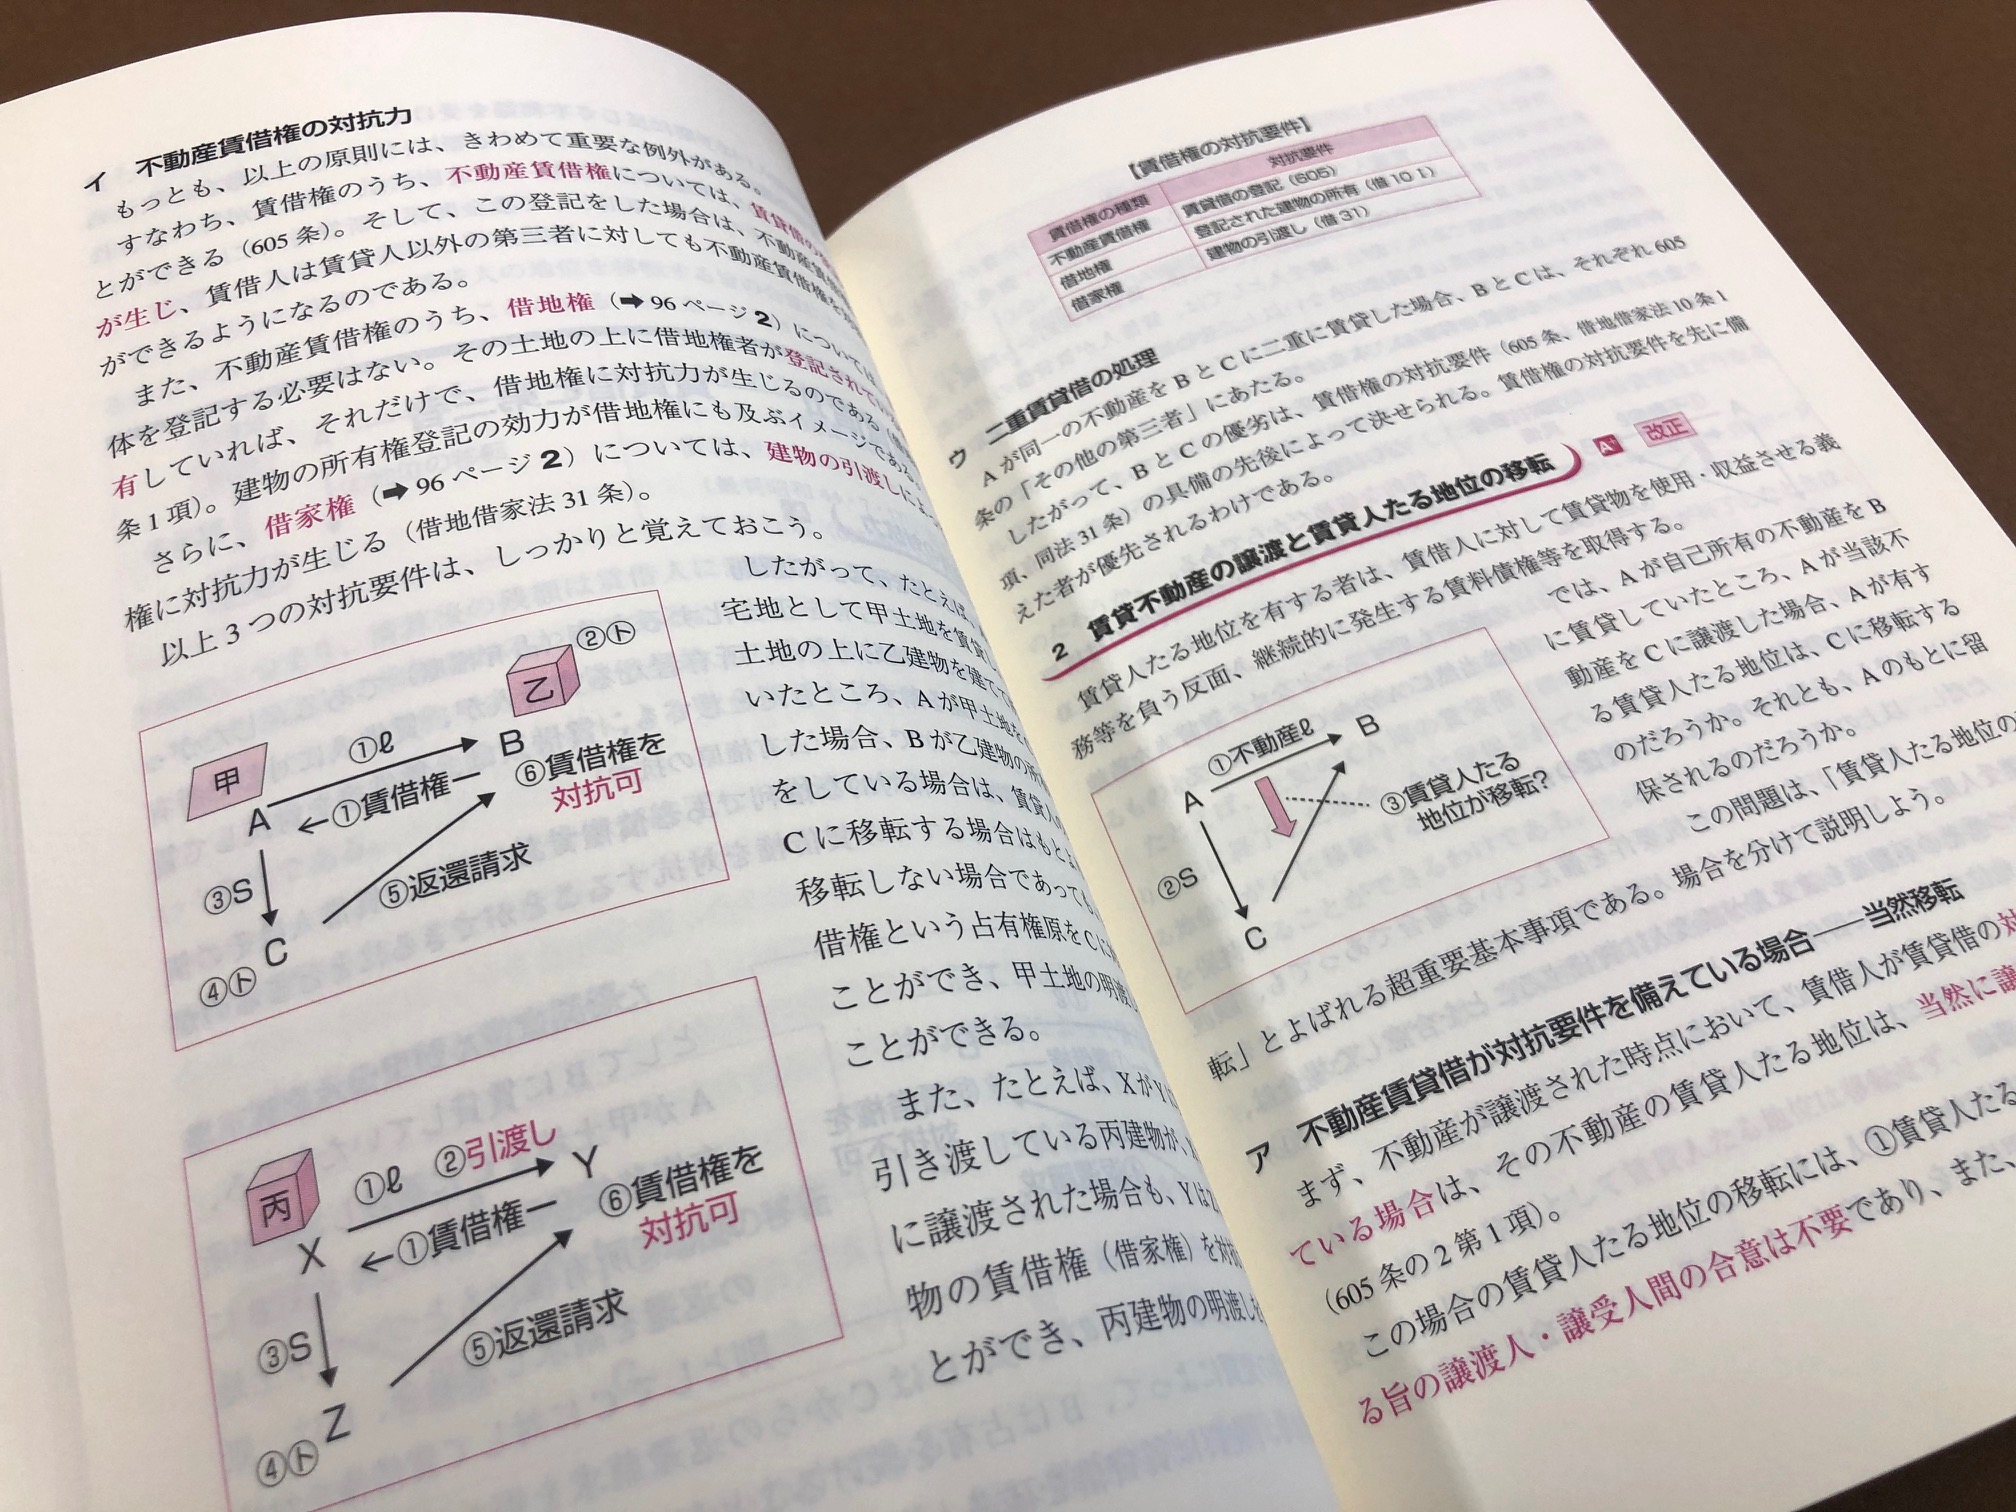 イ 不動産賃借権の対抗力
もっとも、以上の原則には、きわめて重要な例外がある。
すなわち、賃借権のうち、不動産賃借権については、賃貸借の
とができる（605条）。そして、この登記をした場合は、不動産賃
が生じ、賃借人は賃貸人以外の第三者に対しても不動産賃借権を
ができるようになるのである。
また、不動産賃借権のうち、借地権（➡96ページ2）については、
体を登記する必要はない。その土地の上に借地権者が登記されてい
有していれば、それだけで、借地権に対抗力が生じるのである
条1項）。建物の所有権登記の効力が借地権にも及ぶイメージである。
さらに、借家権（➡96ページ2）については、建物の引渡しによ
権に対抗力が生じる（借地借家法31条）。
以上3つの対抗要件は、しっかりと覚えておこう。
甲
乙
②ト
①ℓ
A
B
←①賃借権ー
⑥賃借権を
対抗可
③S
⑤返還請求
C
④ト
したがって、たとえば、
宅地として甲土地を賃貸し
土地の上に乙建物を建てて
いたところ、Aが甲土地を
した場合、Bが乙建物の所
をしている場合は、賃貸人
Cに移転する場合はもとよ
移転しない場合であっても
借権という占有権原をCに
ことができ、甲土地の明渡
ことができる。
丙
①ℓ
②引渡し
X
Y
←①賃借権ー
⑥賃借権を
対抗可
③S
⑤返還請求
Z
④ト
また、たとえば、XがYに
引き渡している丙建物が、X
に譲渡された場合も、YはZ
物の賃借権（借家権）を対抗
とができ、丙建物の明渡しを
【賃借権の対抗要件】
賃借権の種類 対抗要件
不動産賃借権 賃貸借の登記（605）
借地権 登記された建物の所有（借10Ⅰ）
借家権 建物の引渡し（借31）
ウ 二重賃貸借の処理
Aが同一の不動産をBとCに二重に賃貸した場合、BとCは、それぞれ605
条の「その他の第三者」にあたる。
したがって、BとCの優劣は、賃借権の対抗要件（605条、借地借家法10条1
項、同法31条）の具備の先後によって決せられる。賃借権の対抗要件を先に備
えた者が優先されるわけである。
2 賃貸不動産の譲渡と賃貸人たる地位の移転 A+ 改正
賃貸人たる地位を有する者は、賃借人に対して賃貸物を使用・収益させる義
務等を負う反面、継続的に発生する賃料債権等を取得する。
①不動産ℓ
A
B
②S
③賃貸人たる
地位が移転?
C
では、Aが自己所有の不動産をB
に賃貸していたところ、Aが当該不
動産をCに譲渡した場合、Aが有す
る賃貸人たる地位は、Cに移転する
のだろうか。それとも、Aのもとに留
保されるのだろうか。
この問題は、「賃貸人たる地位の
転」とよばれる超重要基本事項である。場合を分けて説明しよう。
ア 不動産賃貸借が対抗要件を備えている場合——当然移転
まず、不動産が譲渡された時点において、賃借人が賃貸借の対
ている場合は、その不動産の賃貸人たる地位は、当然に譲
（605条の2第1項）。
この場合の賃貸人たる地位の移転には、①賃貸人たる
る旨の譲渡人・譲受人間の合意は不要であり、また、